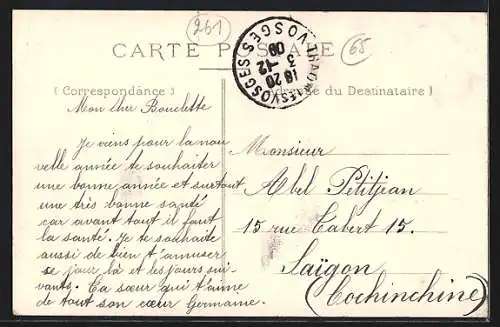 261
CARTE POSTALE
65
THAON-LES-VOSGES VOSGES
18 20
3 -12
09
(Correspondance)
Adresse du Destinataire)
Mon cher Bouclette
Je viens pour la nou
velle année te souhaiter
une bonne année et surtout
une très bonne santé
car avant tout il faut
la santé. Je te souhaite
aussi de bien t'amuser
ce jour là et les jours sui-
vants. Ta sœur qui t'aime
de tout son cœur Germaine.
Monsieur
Abel Petitjean
15 rue Cabert 15.
Saïgon
(Cochinchine)